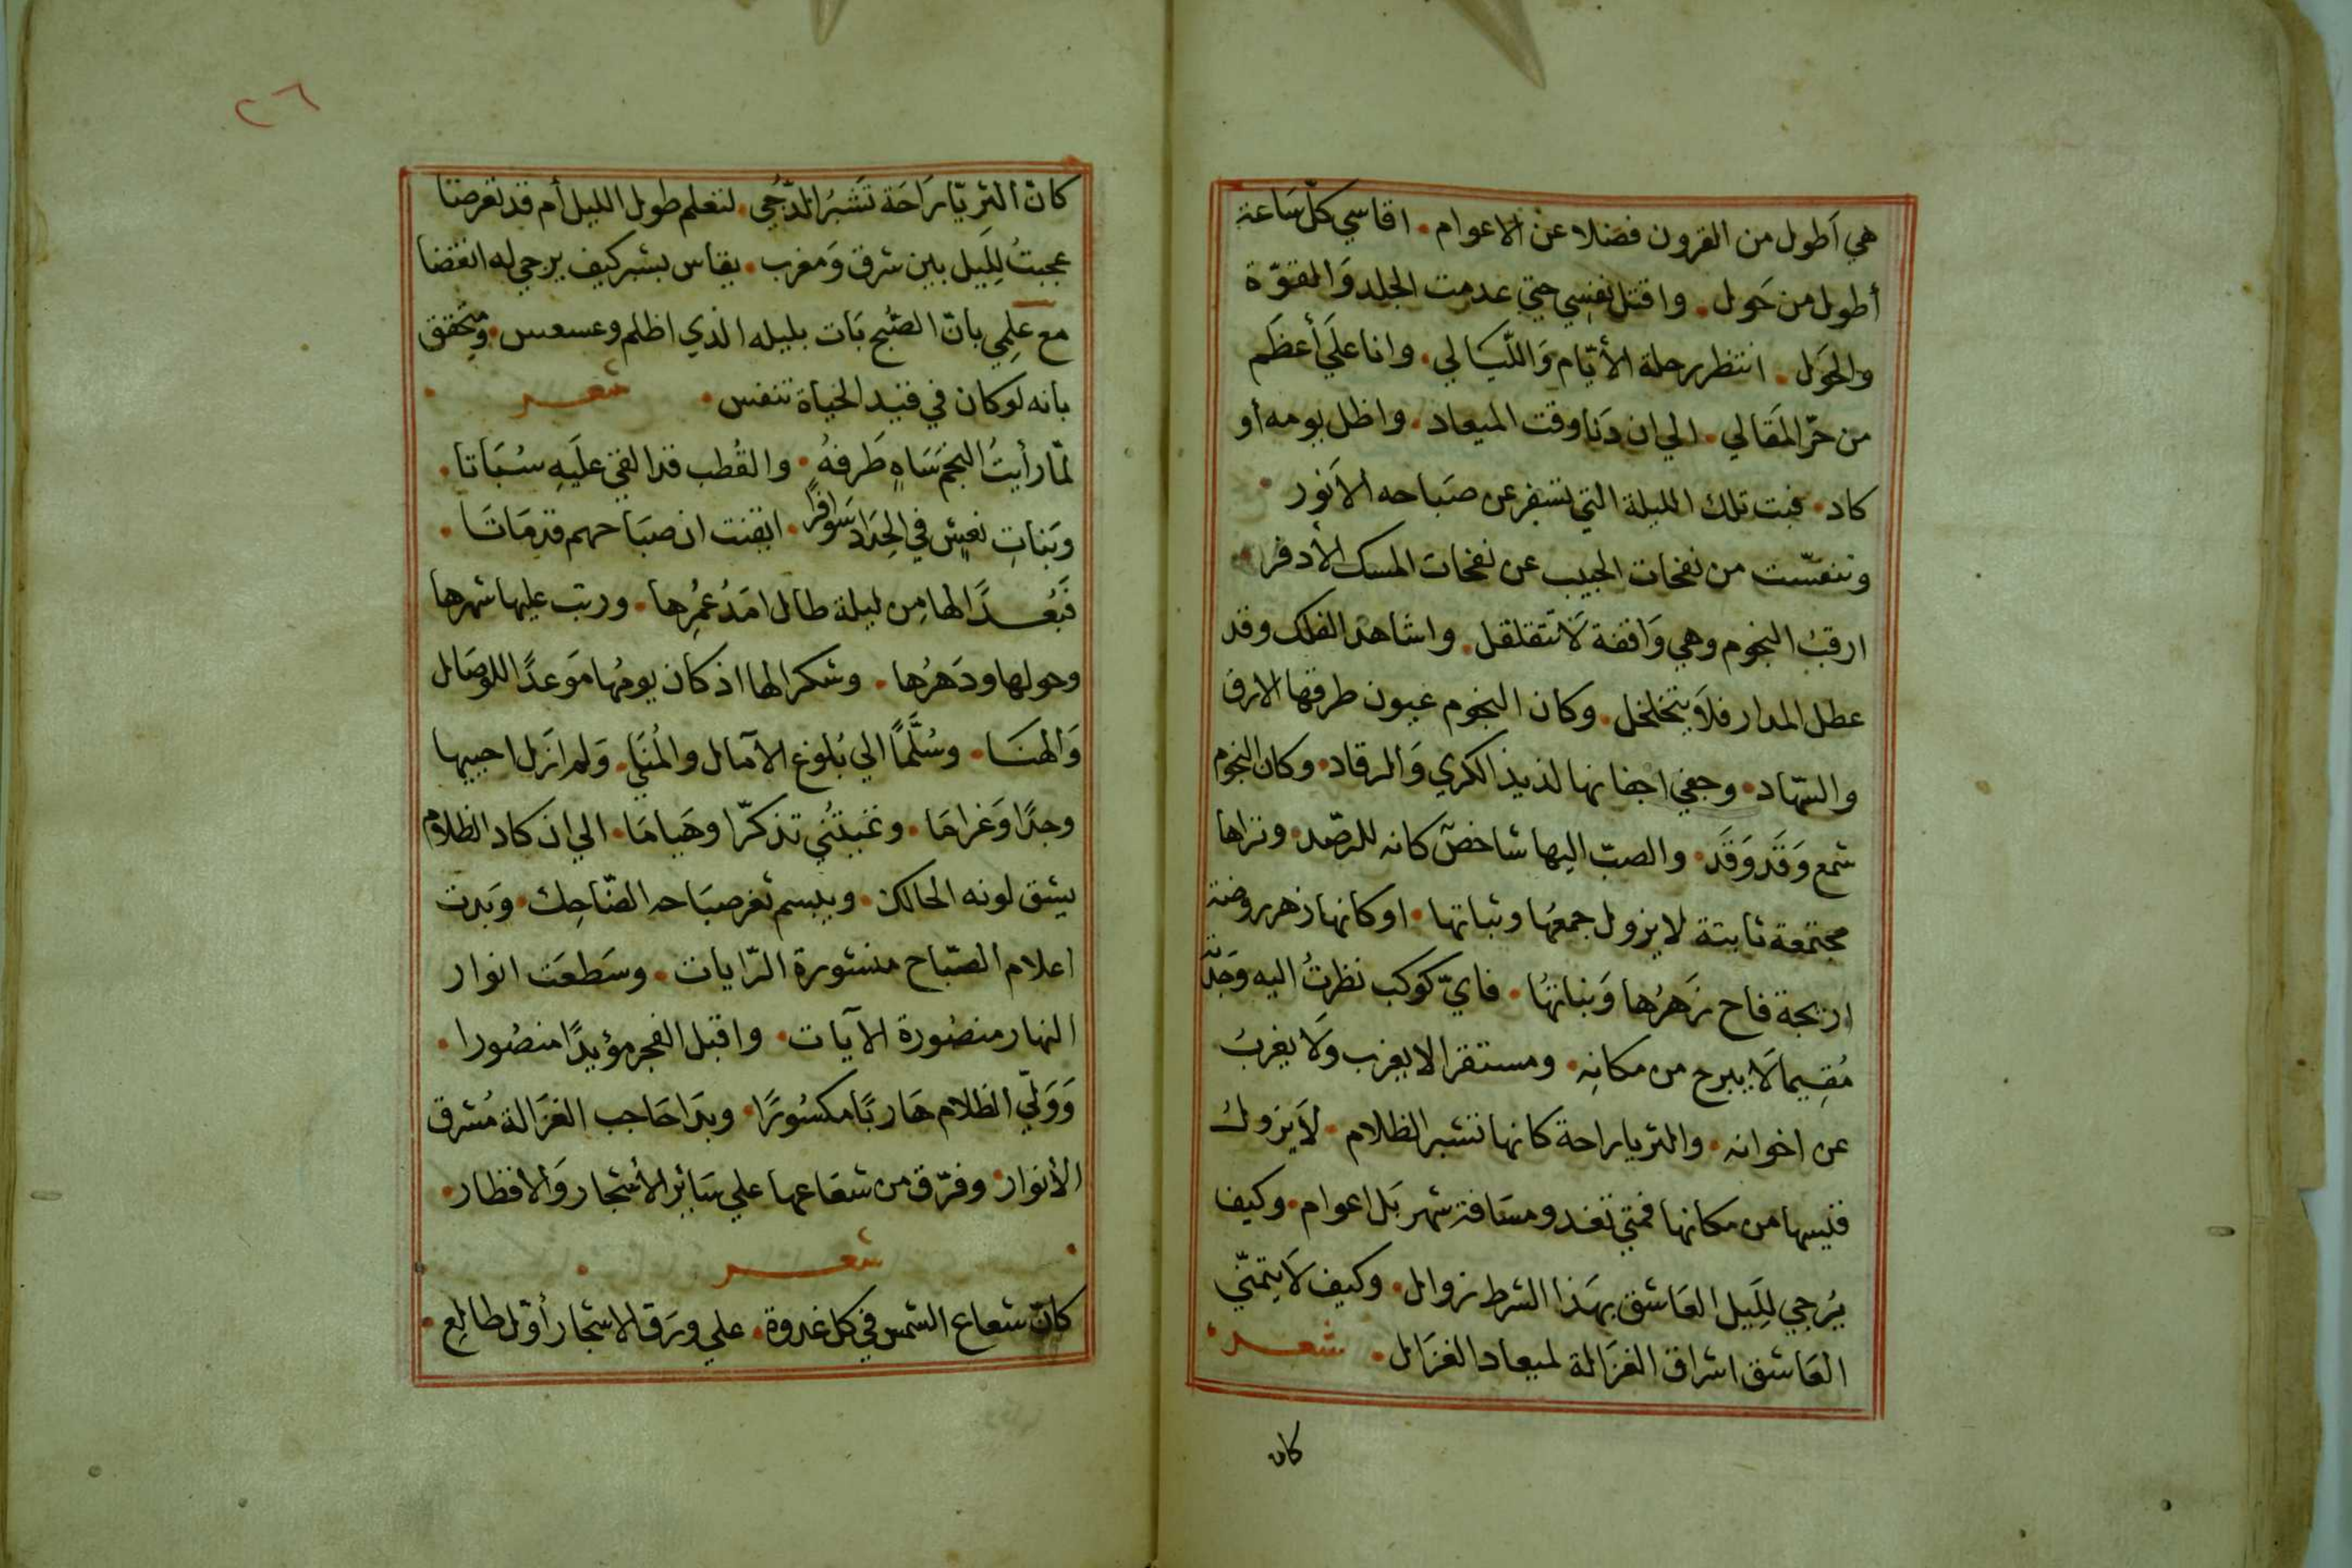 هي أطول من القرون فضلا عن الاعوام . اقاسي كلّ سَاعة
أطول من حَول . واقتل نفسِي حتي عدمت الجلد وَالقوّة
والحَول . انتظر رحلة الأيّام وَاللّيَالي . وانا علَي أعظَم
من حرّ المقَالي . الي ان دَنا وقت الميعاد . واظل يومه أو
كاد . فبت تلك الليلة التي تسفر عن صبَاحه الأنور .
وتنفسّت من نفحات الحبيب عن نفحات المسك الأدفر .
ارقبُ النجوم وهي وَاقفة لَا تتقلقل . واشاهد الفلك وقد
عطل المدار فلَا يتخلخل . وكان النجوم عيون طرفها الارق
والسّهاد . وجفي اجفانها لذيذ الكري وَالرقاد . وكان النجوم
شمع وَقد وَقَد . والصبّ اليها شاخصٌ كانه للرصّد . ونزاها
مجتمعة ثابتة لا يزول جمعُها وثباتها . او كانها زهر روضة
اريجة فاح زَهرُها وَنباتهُا . فايّ كوكب نظرتُ اليه وَجدته
مُقِيما لَا يبرح من مكانِه . ومستقرا لا يعزب ولَا يغربُ
عن اخوانه . والثريا راحة كانها تشبر الظلام . لَا يزول
قيسها من مكانها فمتي تغدو مسَافة شهر بَل اعوام . وكيف
يُرجي لِلَيل العَاشق بهَذا الشرط زوال . وكيف لَا يتمنّي
العَاشق اشراق الغزَالة لميعاد الغزَال . شعـــر .
كان
٢٦
كانّ الثريّا رَاحَة تَشبرُ الدّجي . لتعلم طول الليل أم قد تعرضا
عجبتُ لِلَيل بين شرق وَمغرب . يقاس بشبر كيف يرجي له انقضا
مع عِلمِي بانّ الصّبح بَات بليله الذي اظلم وعسعس . وتحقق
بانه لو كان في قيد الحَياة تنفس . شعـــر .
لمّا رأيتُ النجمَ سَاهٍ طَرفهُ . والقُطب قد القي عليَهِ سُبَاتا .
وبَناتِ نعشٍ في الحِدَاد سَوافرًا . ايقنت ان صبَاحهم قد مَاتَا .
فَبُعـدًا لها مِن ليلة طال امَدُ عمُرِها . وربت عليها شهرها
وحولها ودَهرُها . وشكرا لها اذ كان يومُها مَوعدًا للوصَال
وَالهنَا . وسُلَّمًا الي بُلوغ الآمال والمُنَي . وَلم ازَل احييها
وجدًا وَغرامَا . وتميتُني تذكرّا وهَيامَا . الي ان كاد الظلام
يشق لونه الحالك . ويبسم ثغر صبَاحه الضّاحِك . وَبدت
اعلام الصّباح منشورة الرّايات . وسَطعَت انوار
النهار منصُورة الآيات . واقبل الفجر مؤيدًا منصُورا .
وَوَلّي الظلام هَاربًا مكسُورًا . وبدَا حَاجب الغزَالة مُشرق
الأنوار . وفرّق من شعَاعها علي سَائِر الأشجار وَالاقطار .
شعـــر
كانّ شعاع الشمس في كل غدوة . علي ورَق الاشجار أوّل طالِع .